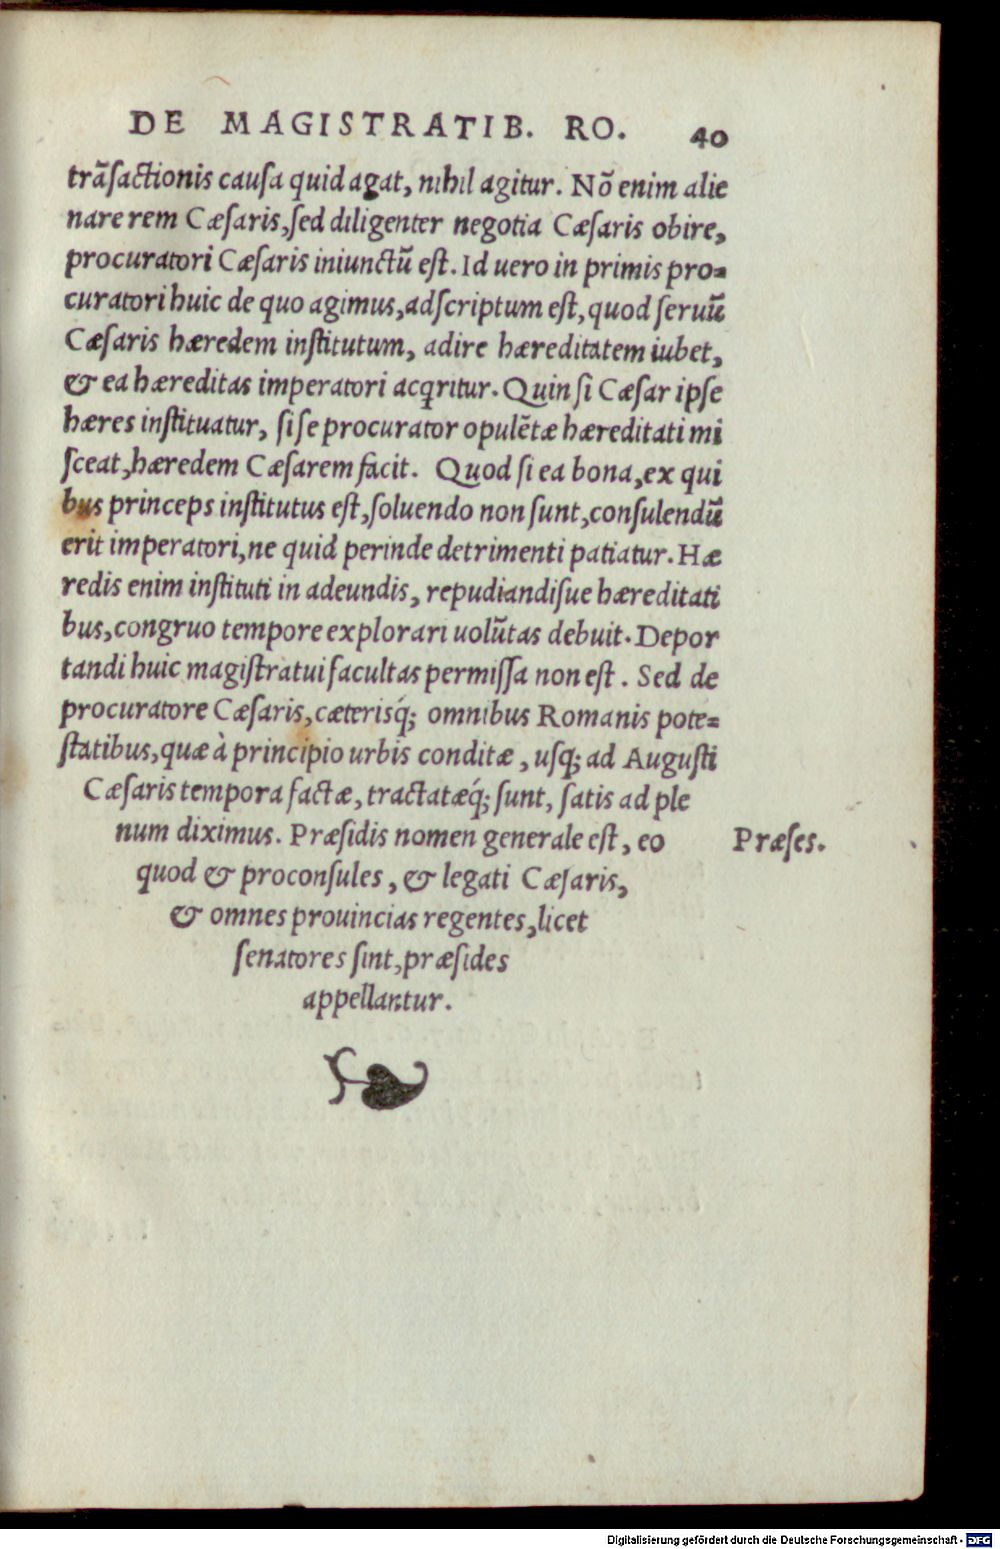 DE MAGISTRATIB. RO. 40
trãſactionis cauſa quid agat, nihil agitur. Nõ enim alie
nare rem Cæſaris, ſed diligenter negotia Cæſaris obire,
procuratori Cæſaris iniunctũ eſt. Id uero in primis pro-
curatori huic de quo agimus, adſcriptum eſt, quod ſeruũ
Cæſaris hæredem inſtitutum, adire hæreditatem iubet,
& ea hæreditas imperatori acqritur. Quin ſi Cæſar ipſe
hæres inſtituatur, ſi ſe procurator opulẽtæ hæreditati mi
ſceat, hæredem Cæſarem facit. Quod ſi ea bona, ex qui
bus princeps inſtitutus eſt, ſoluendo non ſunt, conſulendũ
erit imperatori, ne quid perinde detrimenti patiatur. Hæ
redis enim inſtituti in adeundis, repudiandiſue hæreditati
bus, congruo tempore explorari uolũtas debuit. Depor
tandi huic magiſtratui facultas permiſſa non eſt. Sed de
procuratore Cæſaris, cæterisq́; omnibus Romanis pote-
ſtatibus, quæ à principio urbis conditæ, uſq; ad Auguſti
Cæſaris tempora factæ, tractatæq́; ſunt, ſatis ad ple
num diximus. Præſidis nomen generale eſt, eo
Præſes.
quod & proconſules, & legati Cæſaris,
& omnes prouincias regentes, licet
ſenatores ſint, præſides
appellantur.
Digitalisierung gefördert durch die Deutsche Forschungsgemeinschaft - DFG